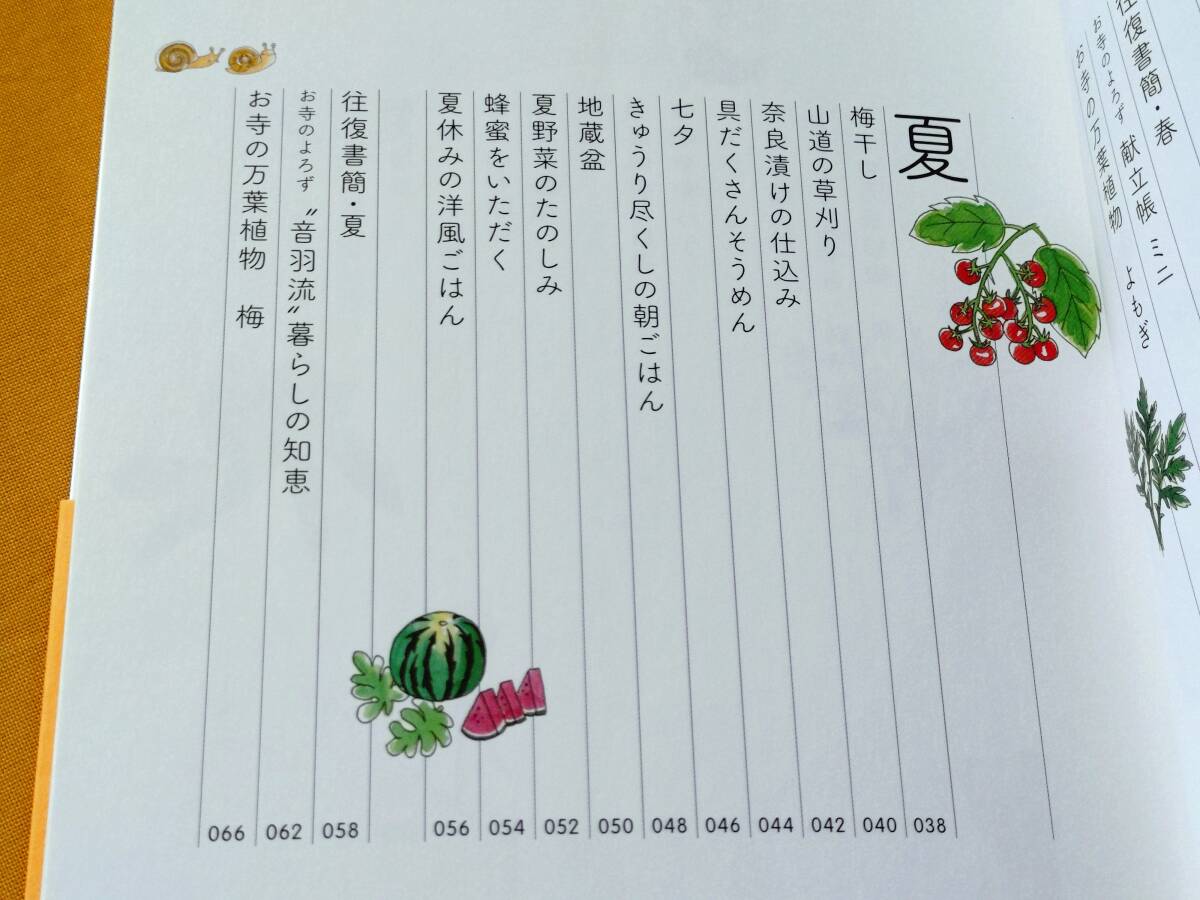 往復書簡・春
お寺のよろず 献立帳 ミニ
お寺の万葉植物 よもぎ
夏
梅干し 038
山道の草刈り 040
奈良漬けの仕込み 042
具だくさんそうめん 044
七夕 046
きゅうり尽くしの朝ごはん 048
地蔵盆 050
夏野菜のたのしみ 052
蜂蜜をいただく 054
夏休みの洋風ごはん 056
往復書簡・夏 058
お寺のよろず 〝音羽流〟暮らしの知恵 062
お寺の万葉植物 梅 066